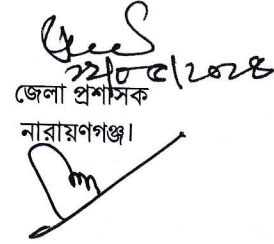 ২২/০৫/২০২৪
জেলা প্রশাসক
নারায়ণগঞ্জ।